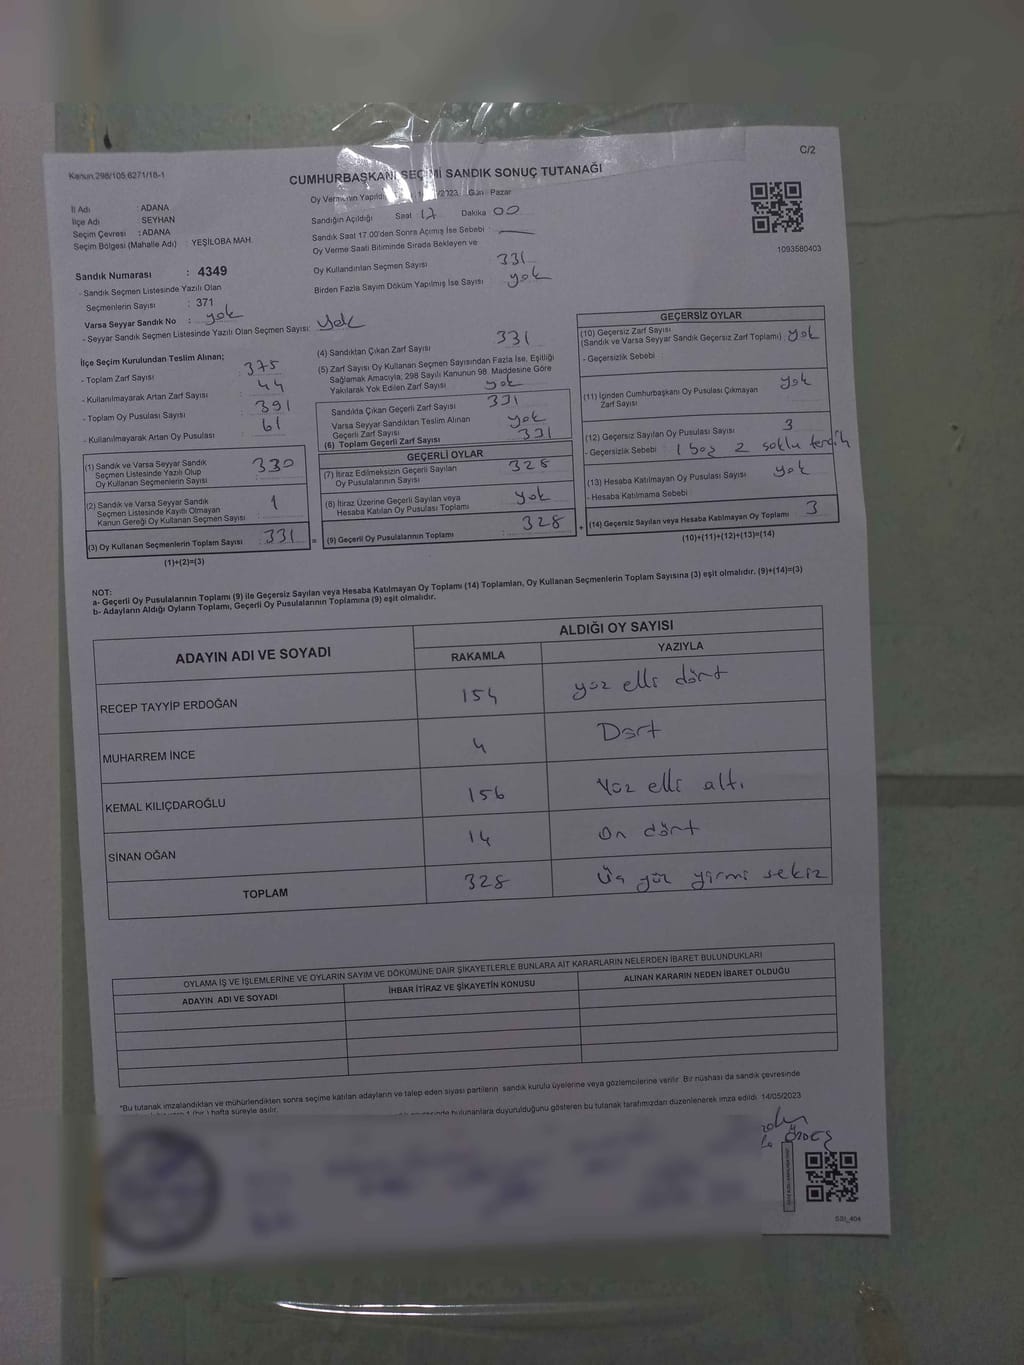 C/2
Kanun.298/105,6271/18-1
CUMHURBAŞKANI SEÇİMİ SANDIK SONUÇ TUTANAĞI
Oy Vermenin Yapıldığı /2023 Gün : Pazar
İl Adı : ADANA
İlçe Adı : SEYHAN
Seçim Çevresi : ADANA
Seçim Bölgesi (Mahalle Adı) : YEŞİLOBA MAH.
Sandığın Açıldığı Saat 17 Dakika 00
Sandık Saat 17.00'den Sonra Açılmış İse Sebebi :
Oy Verme Saati Bitiminde Sırada Bekleyen ve
Oy Kullandırılan Seçmen Sayısı 331
Birden Fazla Sayım Döküm Yapılmış İse Sayısı : yok
1093580403
Sandık Numarası : 4349
- Sandık Seçmen Listesinde Yazılı Olan
Seçmenlerin Sayısı : 371
Varsa Seyyar Sandık No : yok
- Seyyar Sandık Seçmen Listesinde Yazılı Olan Seçmen Sayısı: yok
İlçe Seçim Kurulundan Teslim Alınan;
- Toplam Zarf Sayısı : 375
- Kullanılmayarak Artan Zarf Sayısı : 44
- Toplam Oy Pusulası Sayısı : 391
- Kullanılmayarak Artan Oy Pusulası : 61
(1) Sandık ve Varsa Seyyar Sandık
Seçmen Listesinde Yazılı Olup
Oy Kullanan Seçmenlerin Sayısı : 330
(2) Sandık ve Varsa Seyyar Sandık
Seçmen Listesinde Kayıtlı Olmayan
Kanun Gereği Oy Kullanan Seçmen Sayısı : 1
(3) Oy Kullanan Seçmenlerin Toplam Sayısı : 331
(1)+(2)=(3)
(4) Sandıktan Çıkan Zarf Sayısı 331
(5) Zarf Sayısı Oy Kullanan Seçmen Sayısından Fazla İse, Eşitliği
Sağlamak Amacıyla, 298 Sayılı Kanunun 98. Maddesine Göre
Yakılarak Yok Edilen Zarf Sayısı : yok
Sandıkta Çıkan Geçerli Zarf Sayısı 331
Varsa Seyyar Sandıktan Teslim Alınan
Geçerli Zarf Sayısı yok
(6) Toplam Geçerli Zarf Sayısı 331
GEÇERLİ OYLAR
(7) İtiraz Edilmeksizin Geçerli Sayılan
Oy Pusulalarının Sayısı 328
(8) İtiraz Üzerine Geçerli Sayılan veya
Hesaba Katılan Oy Pusulası Toplamı : yok
= (9) Geçerli Oy Pusulalarının Toplamı : 328 +
GEÇERSİZ OYLAR
(10) Geçersiz Zarf Sayısı
(Sandık ve Varsa Seyyar Sandık Geçersiz Zarf Toplamı) yok
- Geçersizlik Sebebi :
(11) İçinden Cumhurbaşkanı Oy Pusulası Çıkmayan
Zarf Sayısı yok
(12) Geçersiz Sayılan Oy Pusulası Sayısı : 3
- Geçersizlik Sebebi : 1 boş 2 tercih
(13) Hesaba Katılmayan Oy Pusulası Sayısı : yok
- Hesaba Katılmama Sebebi :
(14) Geçersiz Sayılan veya Hesaba Katılmayan Oy Toplamı : 3
(10)+(11)+(12)+(13)=(14)
NOT:
a- Geçerli Oy Pusulalarının Toplamı (9) ile Geçersiz Sayılan veya Hesaba Katılmayan Oy Toplamı (14) Toplamları, Oy Kullanan Seçmenlerin Toplam Sayısına (3) eşit olmalıdır. (9)+(14)=(3)
b- Adayların Aldığı Oyların Toplamı, Geçerli Oy Pusulalarının Toplamına (9) eşit olmalıdır.
ADAYIN ADI VE SOYADI ALDIĞI OY SAYISI
RAKAMLA YAZIYLA
RECEP TAYYİP ERDOĞAN 154 yüz elli dört
MUHARREM İNCE 4 Dört
KEMAL KILIÇDAROĞLU 156 Yüz elli altı
SİNAN OĞAN 14 On dört
TOPLAM 328 Üç yüz yirmi sekiz
OYLAMA İŞ VE İŞLEMLERİNE VE OYLARIN SAYIM VE DÖKÜMÜNE DAİR ŞİKAYETLERLE BUNLARA AİT KARARLARIN NELERDEN İBARET BULUNDUKLARI
ADAYIN ADI VE SOYADI İHBAR İTİRAZ VE ŞİKAYETİN KONUSU ALINAN KARARIN NEDEN İBARET OLDUĞU
*Bu tutanak imzalandıktan ve mühürlendikten sonra seçime katılan adayların ve talep eden siyasi partilerin sandık kurulu üyelerine veya gözlemcilerine verilir. Bir nüshası da sandık çevresinde
1 (bir) hafta süreyle asılır.
bulunanlara duyurulduğunu gösteren bu tutanak tarafımızdan düzenlenerek imza edildi. 14/05/2023
SSI_404